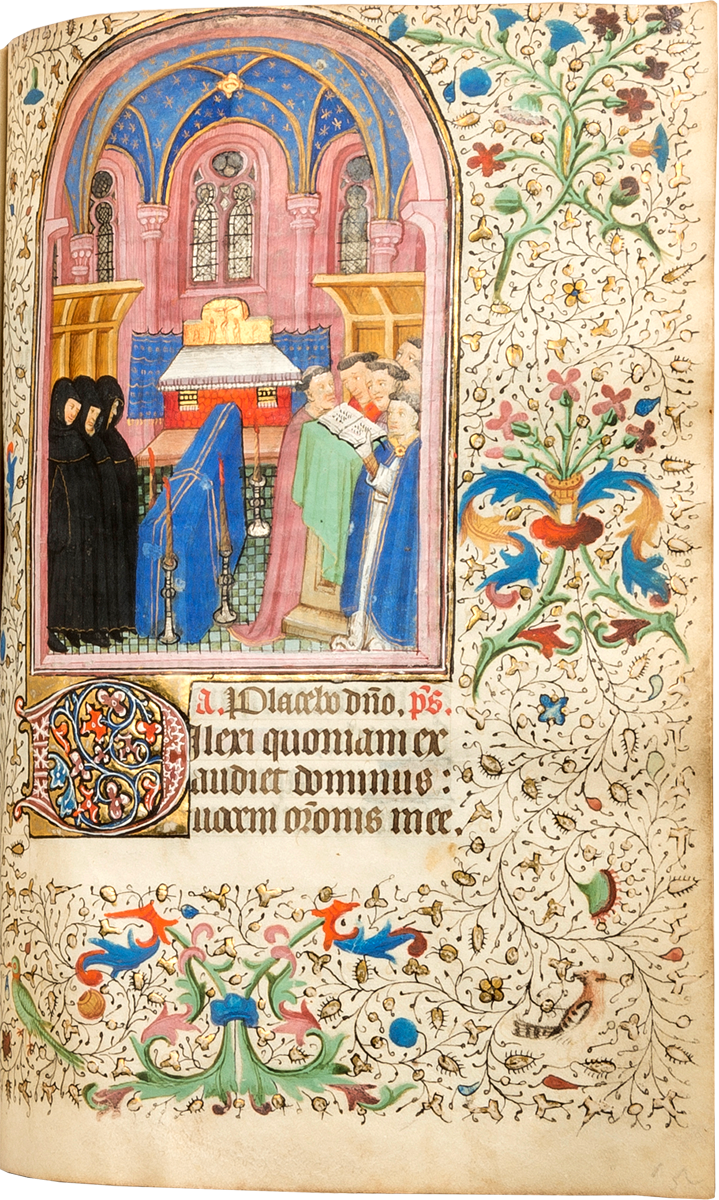 a. Placebo dño. p̃s.
Dilexi quoniam ex
audiet dominus :
uocem or̃onis mee.